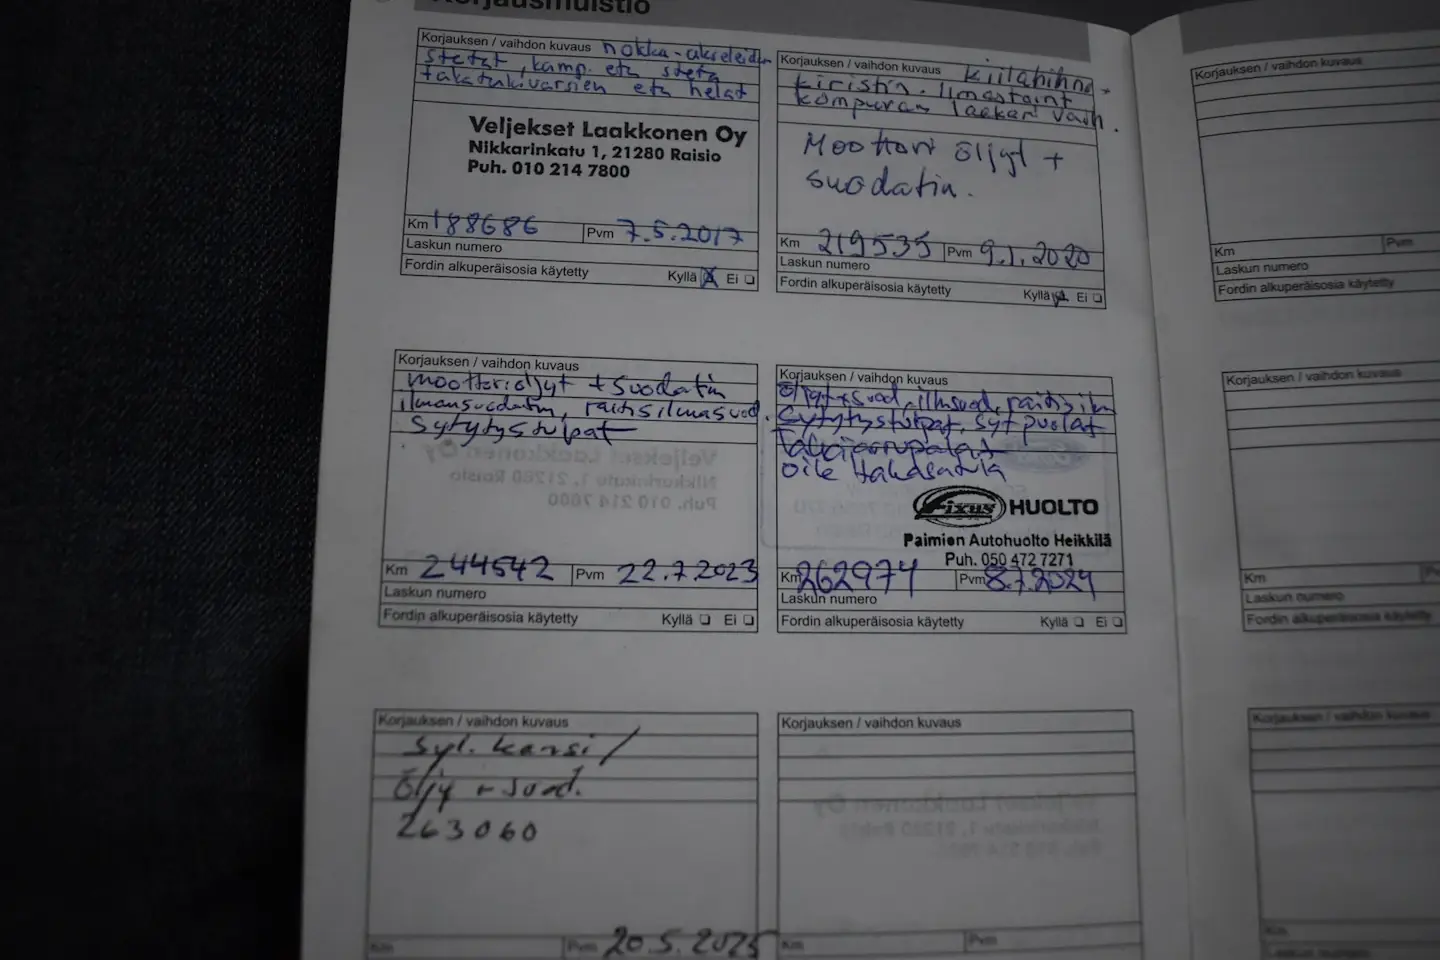 Korjausmuistio
Korjauksen / vaihdon kuvaus nokka-akseleiden
stefat, kamp. etu stefa
takatukivarsien etu helat
Veljekset Laakkonen Oy
Nikkarinkatu 1, 21280 Raisio
Puh. 010 214 7800
Km 188686 Pvm 7.5.2017
Laskun numero
Fordin alkuperäisosia käytetty Kyllä Ei
Korjauksen / vaihdon kuvaus Kiilahihna
kiristin. Ilmastoint
kompuran laaker vaih.
Moottori öljyt +
suodatin.
Km 219535 Pvm 9.1.2020
Laskun numero
Fordin alkuperäisosia käytetty Kyllä Ei
Korjauksen / vaihdon kuvaus
Moottoriöljyt + suodatin
ilmansuodatin, raitisilmasuod.
Sytytystulpat
Km 244542 Pvm 22.7.2023
Laskun numero
Fordin alkuperäisosia käytetty Kyllä Ei
Korjauksen / vaihdon kuvaus
öljyt + suod, ilmsuod, raitisilm
Sytytystulpat, syt puolat
takajarrupalat
oike takasatula
Fixus HUOLTO
Paimion Autohuolto Heikkilä
Puh. 050 472 7271
Km 262974 Pvm 8.7.2024
Laskun numero
Fordin alkuperäisosia käytetty Kyllä Ei
Korjauksen / vaihdon kuvaus
Syl. kansi /
Öljy + suod.
263060
Km Pvm 20.5.2025
Korjauksen / vaihdon kuvaus
Km Pvm
Korjauksen / vaihdon kuvaus
Km Pvm
Laskun numero
Fordin alkuperäisosia käytetty
Korjauksen / vaihdon kuvaus
Km
Laskun numero
Fordin alkuperäisosia käytetty
Korjauksen / vaihdon kuvaus
Km